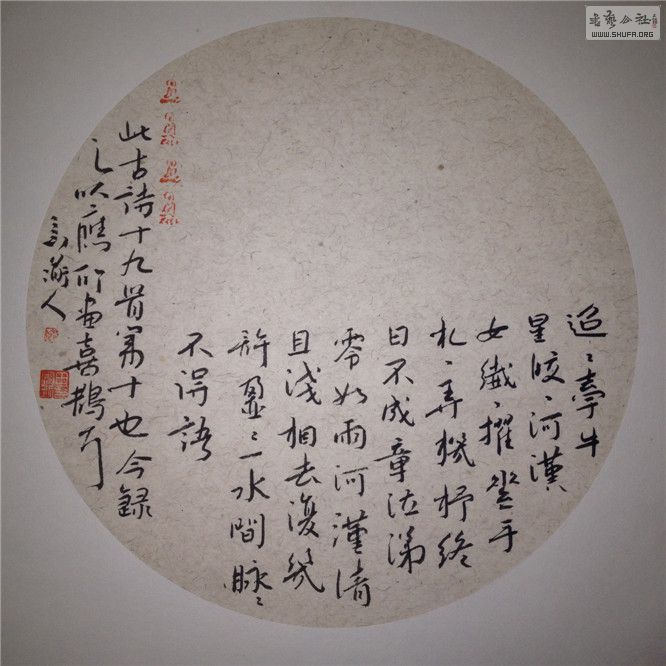 迢〻牽牛
星皎〻河漢
女纖〻擢素手
札〻弄機杼終
日不成章泣涕
零如雨河漢清
且淺相去復幾
許盈〻一水間脉〻
不得語
此古詩十九首第十也今録
之以應所畫喜鵲
人
書藝公社
WWW.SHUFA.ORG